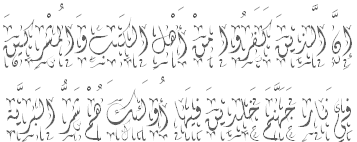 إِنَّ الَّذِينَ كَفَرُوا مِنْ أَهْلِ الْكِتَٰبِ وَالْمُشْرِكِينَ
فِي نَارِ جَهَنَّمَ خَٰلِدِينَ فِيهَا أُولَٰئِكَ هُمْ شَرُّ الْبَرِيَّةِ